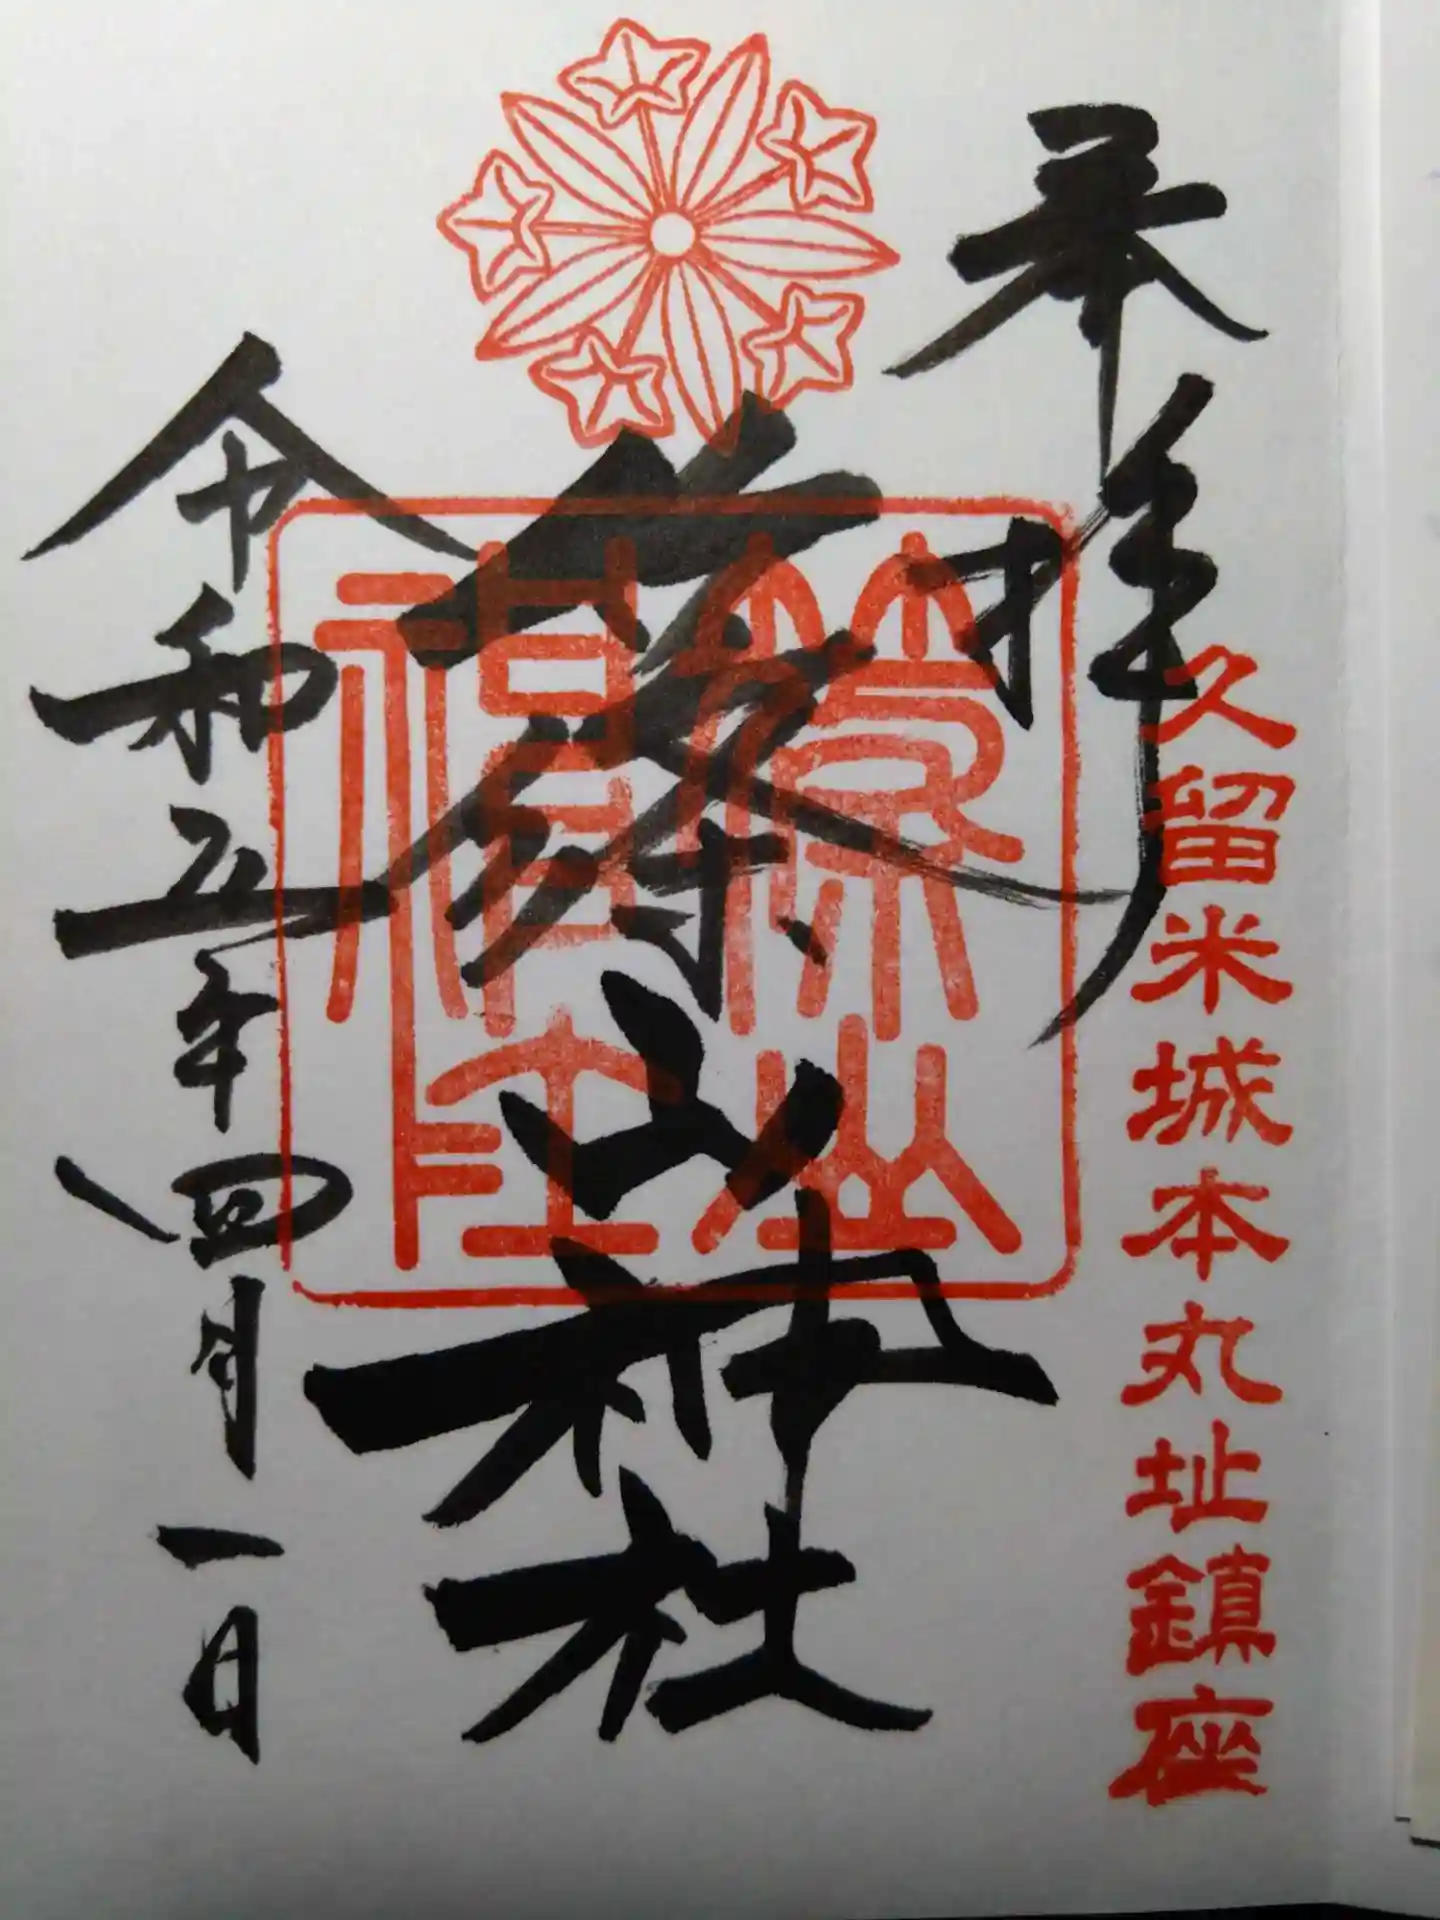 奉拝
久留米城本丸址鎮座
篠山神社
篠山神社
令和五年四月一日